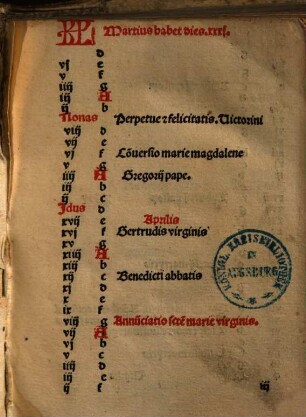 KL Martius habet dies.xxxj.
d
vj e
v f
iiij g
iij A
ij b
Nonas c Perpetue ⁊ felicitatis. Victorini
viij d
vij e
vj f Cōversio marie magdalene
v g
iiij A Gregorij pape.
iij b
ij c
Idus d
xvij e Aprilis
xvj f Gertrudis virginis
xv g
xiiij A
xiij b
xij c Benedicti abbatis
xj d
x e
ix f
viij g Annūciatio sctē marie virginis.
vij A
vj b
v c
iiij d
iij e
ij f
iij
KÖNIGL. KREISBIBLIOTHEK
AUGSBURG